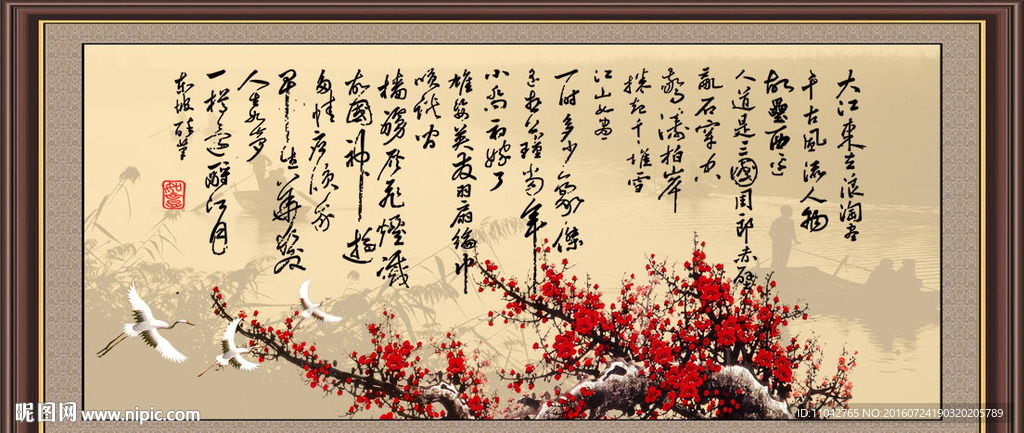 大江東去浪淘盡
千古風流人物
故壘西邊
人道是三國周郎赤壁
亂石穿空
驚濤拍岸
捲起千堆雪
江山如畫
一時多少豪傑
遙想公瑾當年
小喬初嫁了
雄姿英發羽扇綸巾
談笑間
檣櫓灰飛煙滅
故國神遊
多情應笑我
早生華髮
人生如夢
一樽還酹江月
東坡
如意
昵图网 www.nipic.com
ID:11042765 NO:20160724190320205789